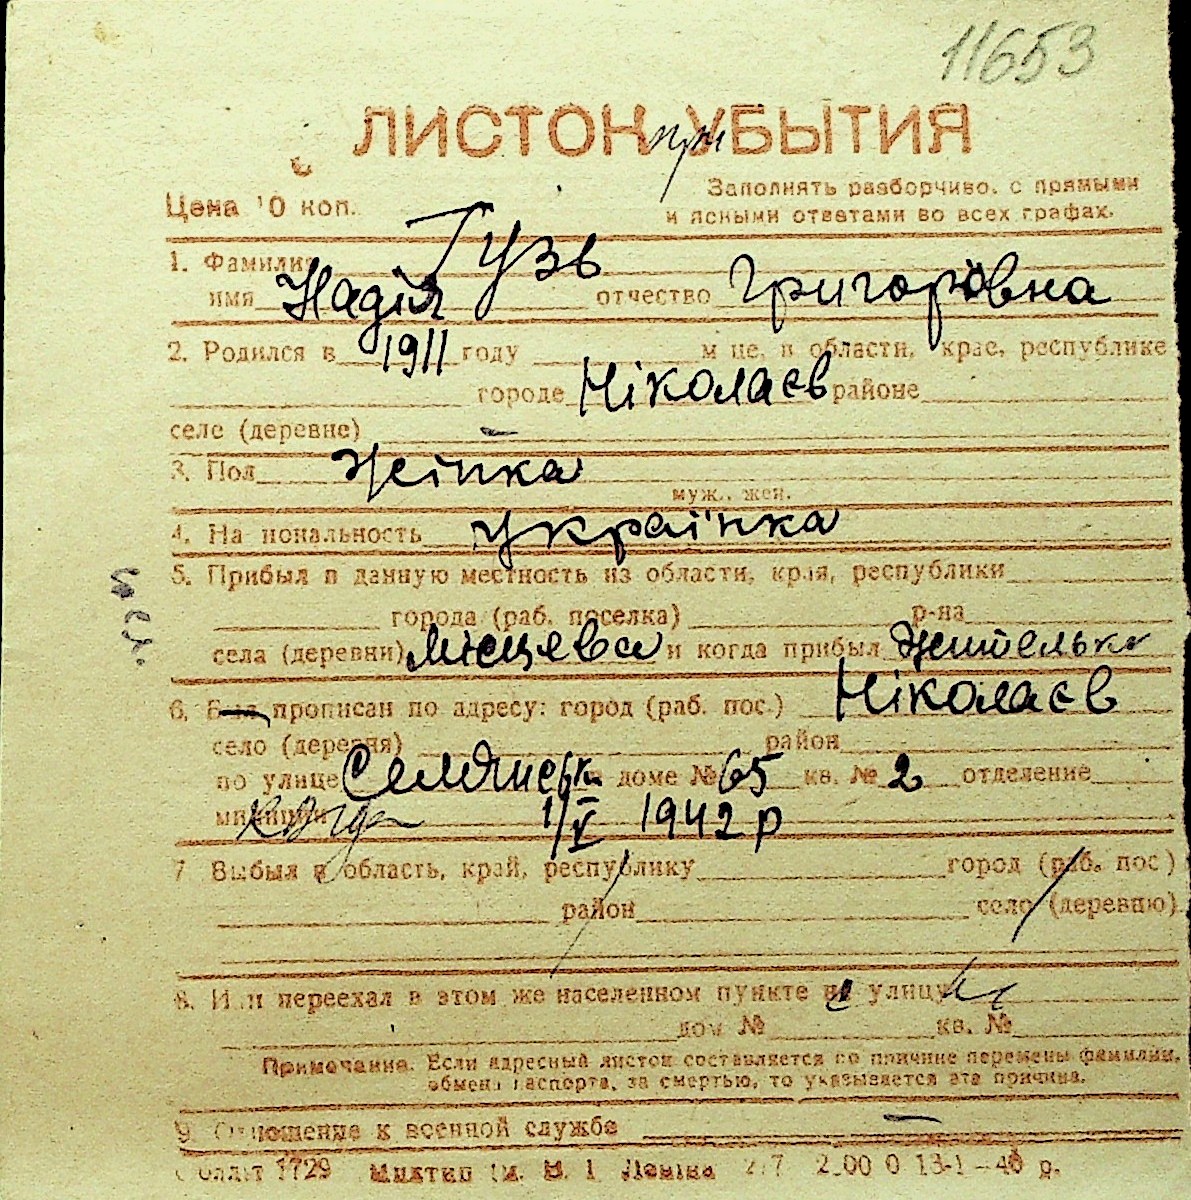 11653
ЛИСТОК при УБЫТИЯ
Цена 10 коп.
Заполнять разборчиво, с прямыми
и ясными ответами во всех графах.
1. Фамилия Гузь
имя Надія отчество Григорівна
2. Родился в 1911 году м це, в области, крае, республике
городе Ніколаєв районе
селе (деревне) —
3. Пол жінка
муж., жен.
4. На иональность українка
5. Прибыл в данную местность из области, края, республики
города (раб. поселка) р-на
села (деревни) Місцева и когда прибыл жителька
6. Был прописан по адресу: город (раб. пос.) Ніколаєв
село (деревня) район
по улице доме № 65 кв. № 2 отделение
милиции когда 1/V 1942 р
7 Выбыл в область, край, республику город (раб. пос.)
район село (деревню)
8. Или переехал в этом же населенном пункте на улицу
дом № кв. №
Примечание. Если адресный листок составляется по причине перемены фамилии,
обмена паспорта, за смертью, то указывается эта причина.
9. Отношение к военной службе —
1729 Миктип ім. В. І. Леніна